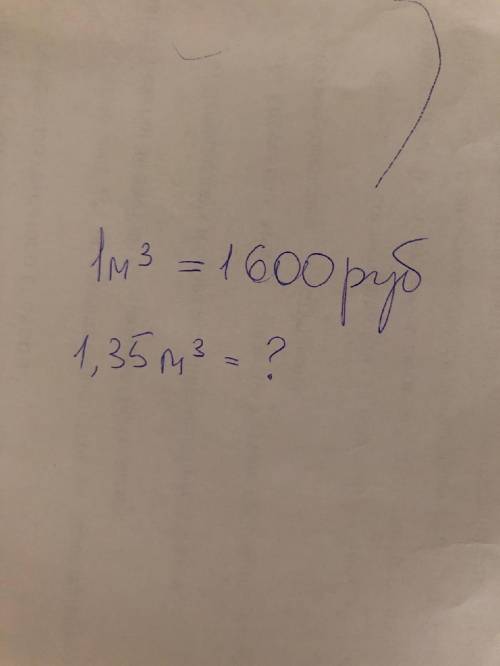 1м³ = 1600 руб
1,35 м³ = ?